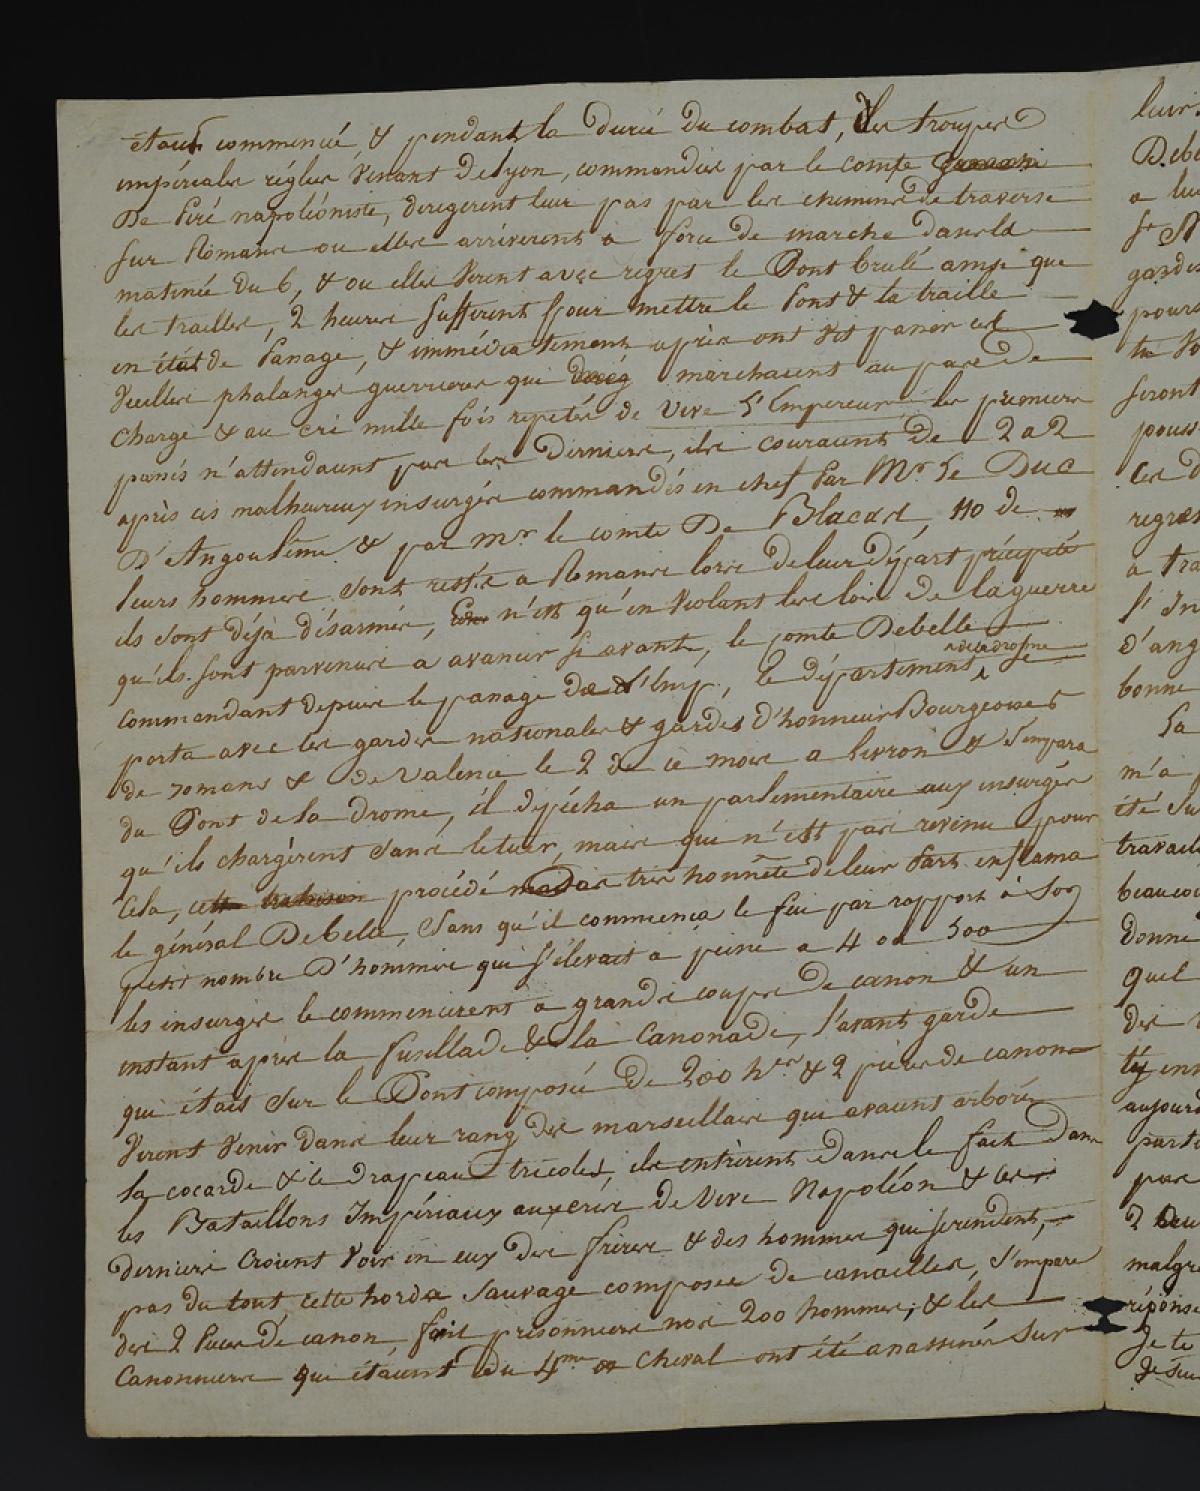 étant commencé, & pendant la durée du combat, des troupes
impériales réglées venant de Lyon, commandées par le comte
De Piré napoléoniste, dirigerent leur pas par les chemins de traverse
sur Romans ou elles arriverent a force de marche dans la
matinée du 6, & ou elles virent avec regret le Pont brulé ainsi que
les trailles, 2 heures suffirent pour mettre le Pont & la traille
en état de Passage, & immédiatement après ont vit passer ces
vieilles phalanges guerrieres qui marchaient au pas de
charge & au cri mille fois repetés de Vive L'Empereur les premiers
passés n'attendaient pas les Derniers, ils couraient De 2 a 2
après ces malheureux insurgés commandés en chef Par Mr. Le Duc
D'Angoulême & par mr le comte De Blacard, 110 de
leurs hommes sont restés a Romans lors de leur départ précipité
ils sont déjà désarmés, n'est qu'en violant les lois de la guerre
qu'ils sont parvenus a avancer si avant, le comte Debelle
commandant depuis le passage de l'Emp, le département de la drome se
porta avec les gardes nationales & gardes d'honneur Bourgeoises
de romans & de Valence le 2 de ce mois a Livron & s'empara
du Pont de la Drome, il dépécha un parlementaire aux insurgés
qu'ils chargèrent sans le tuer, mais qui n'est pas revenu pour
Cela, cette trahison procédé pas tres honnête de leur Part enflama
le général Debelle, Sans qu'il commença le feu par rapport à Son
petit nombre D'hommes qui s'élevait a peine a 4 ou 500
les insurgés le commencerent a grands coups de canon & un
instant après la fusillade & la Canonade, l'avant garde
qui étais sur le Pont composée De 200 hes & 2 pièces de canon
virent venir dans leur rang des marseillais qui avaient arborés
la cocarde & le Drapeau tricolor, ils entrèrent dans le fait dans
les Bataillons Impériaux aux cris de Vive Napoléon & les
derniers croient voir en eux des frères & des hommes qui se rendent,
pas du tout, cette horde sauvage composée de canailles, s'empare
des 2 Pieces de canon, fait prisonniers nos 200 hommes, & les
Canonniers qui étaient du 4me a Cheval ont été assassinés sur
leur
Debe
a lu
gard
pour
seront
pous
ces D
regret
a tra
d'ang
bonne
La
m'a
été su
travail
beaucou
donne
quel
des
aujourd
parti
pas
2
malgré
réponse
Je te
Je sui